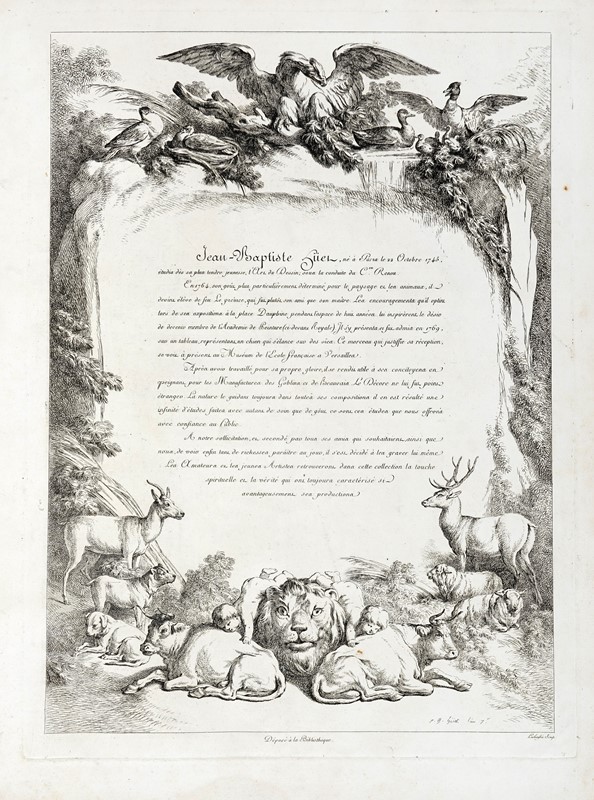 Jean-Baptiste Hüet, né à Paris le 22 Octobre 1745,
étudia dès sa plus tendre jeunesse, l'Art du Dessin, sous la conduite du C.en Renou.
En 1764, son goût plus particulièrement déterminé pour le paysage et les animaux, il
devint élève de feu Le prince, qui fut plutôt son ami que son maître. Les encouragements qu'il
de son exposition à la place Dauphine, pendant l'espace de deux années, lui inspirèrent le désir
de devenir membre de l'Academie de Peinture (ci-devant Royale) Il s'y présenta et fut admis en 1769,
sur un tableau, représentant, un chien qui s'élance sur des oies. Ce morceau qui justifie sa réception,
se voit à présent au Muséum de l'Ecole française à Versailles.
Après avoir travaillé pour sa propre gloire, il se rendit utile à ses concitoyens en
peignant, pour les Manufactures des Goblins et de Beauvais. Le Décore ne lui fut point
étranger. La nature le guidant toujours dans toutes ses compositions il en est résulté une
infinité d'études faites avec autant de soin que de goût, ce sont ces études que nous offrons
avec confiance au Public.
A notre sollicitation, et secondé par tous ses amis qui souhaitaient, ainsi que
nous, de voir enfin tant de richesses paraître au jour, il s'est décidé à les graver lui même.
Les Amateurs et les jeunes Artistes retrouveront dans cette collection la touche
spirituelle et la vérité qui ont toujours caractérisé si
avantageusement ses productions.
Déposé à la Bibliothèque.